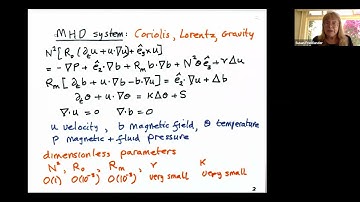 MHD system: Coriolis, Lorentz, Gravity
N²[R₀(∂ₜu + u·∇u) + ê₃×u]
= -∇P + ê₂·∇b + Rₘ b·∇b + N²θ ê₃ + νΔu
Rₘ[∂ₜb + u·∇b - b·∇u] = ê₂·∇u + Δb
∂ₜθ + u·∇θ = κΔθ + S
∇·u = 0 ∇·b = 0
u velocity, b magnetic field, θ temperature
P magnetic + fluid pressure
dimensionless parameters
N², R₀, Rₘ, ν κ
O(1) O(10⁻³) O(10⁻³) very small very small
2